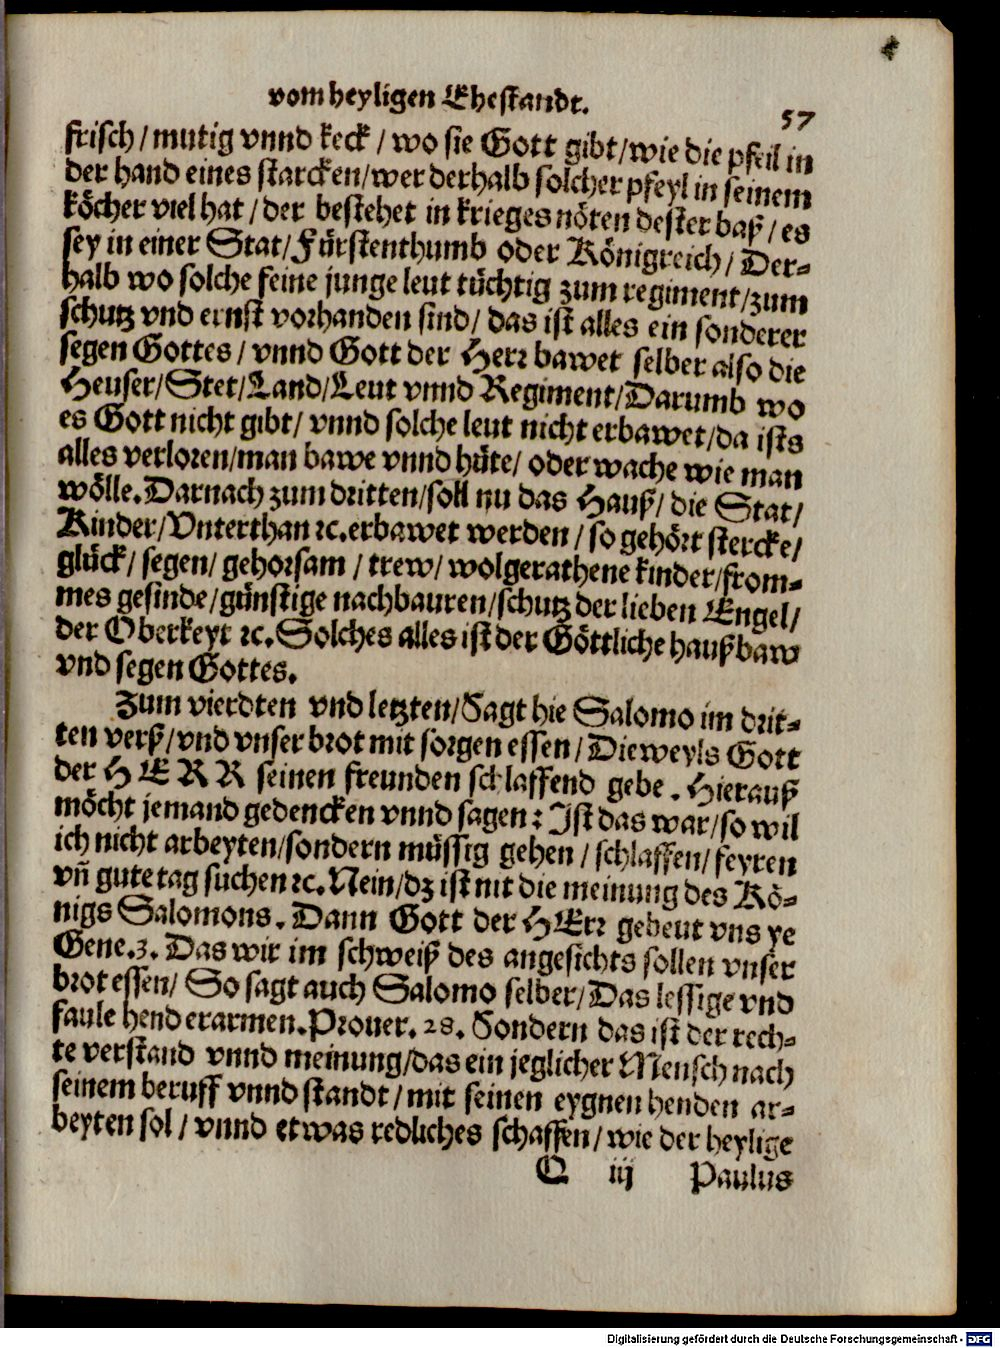 vom heyligen Ehestandt.
57
frisch / mutig vnnd keck / wo sie Gott gibt/wie die pfeil in
der hand eines starcken/wer derhalb solcher pfeyl in seinem
köcher viel hat / der bestehet in krieges nöten dester baß / es
sey in einer Stat/Fürstenthumb oder Königreich / Der-
halb wo solche feine junge leut tüchtig zum regiment/zum
schutz vnd ernst vorhanden sind/ das ist alles ein sonderer
segen Gottes / vnnd Gott der Herr bawet selber also die
Heuser/Stet/Land/Leut vnnd Regiment/Darumb wo
es Gott nicht gibt/ vnnd solche leut nicht erbawet/da ists
alles verloren/man bawe vnnd hüte/ oder wache wie man
wölle. Darnach zum dritten/soll nu das Hauß/ die Stat/
Kinder/Vnterthan ꝛc. erbawet werden / so gehört stercke/
glück/ segen/ gehorsam / trew/ wolgerathene kinder/from-
mes gesinde/günstige nachbauren/schutz der lieben Engel/
der Oberkeyt ꝛc. Solches alles ist der Göttliche haußbaw
vnd segen Gottes.
Zum vierdten vnd letzten/Sagt hie Salomo im drit-
ten verß/vnd vnser brot mit sorgen essen/Dieweyls Gott
der HERR seinen freunden schlaffend gebe. Hierauß
möcht jemand gedencken vnnd sagen: Ist das war/so wil
ich nicht arbeyten/sondern müssig gehen / schlaffen/ feyren
vñ gute tag suchen ꝛc. Nein/dz ist nit die meinung des Kö-
nigs Salomons. Dann Gott der HErr gebeut vns ye
Gene.3. Das wir im schweiß des angesichts sollen vnser
brot essen/ So sagt auch Salomo selber/Das lessige vnd
faule hend erarmen. Prouer. 28. Sondern das ist der rech-
te verstand vnnd meinung/das ein jeglicher Mensch nach
seinem beruff vnnd standt / mit seinen eygnen henden ar-
beyten sol / vnnd etwas redliches schaffen/ wie der heylige
Q iij Paulus
Digitalisierung gefördert durch die Deutsche Forschungsgemeinschaft - DFG